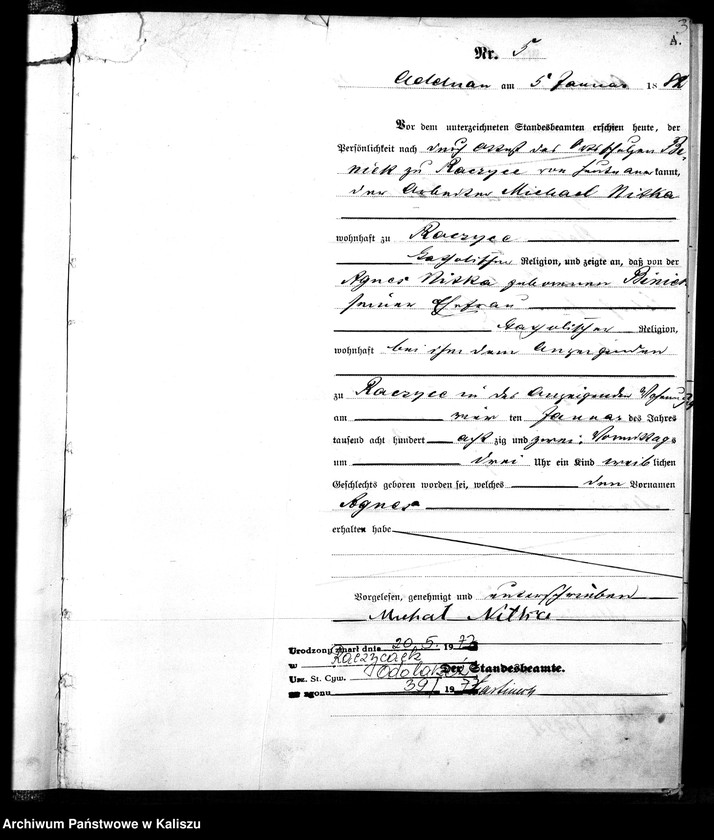 3
A.
Nr. 5
Adelnau am 5 Januar 1882
Vor dem unterzeichneten Standesbeamten erschien heute, der
Persönlichkeit nach durch Attest des Ortsschulzen
zu Raczyce von heute anerkannt,
der Arbeiter Michael Nitka
wohnhaft zu Raczyce
katholischen Religion, und zeigte an, daß von der
Agnes Nitka geborenen
seiner Ehefrau
katholischer Religion,
wohnhaft bei ihm dem Anzeigenden
zu Raczyce in des Anzeigenden Wohnung
am vier ten Januar des Jahres
tausend acht hundert acht zig und zwei, Vormittags
um drei Uhr ein Kind weib lichen
Geschlechts geboren worden sei, welches den Vornamen
Agnes
erhalten habe
Vorgelesen, genehmigt und unterschrieben
Michał Nitka
Urodzony zmarł dnia 20.5. 1977
w Raczycach
Der Standesbeamte.
Urz. St. Cyw.
nr zgonu 39/ 1977
Archiwum Państwowe w Kaliszu